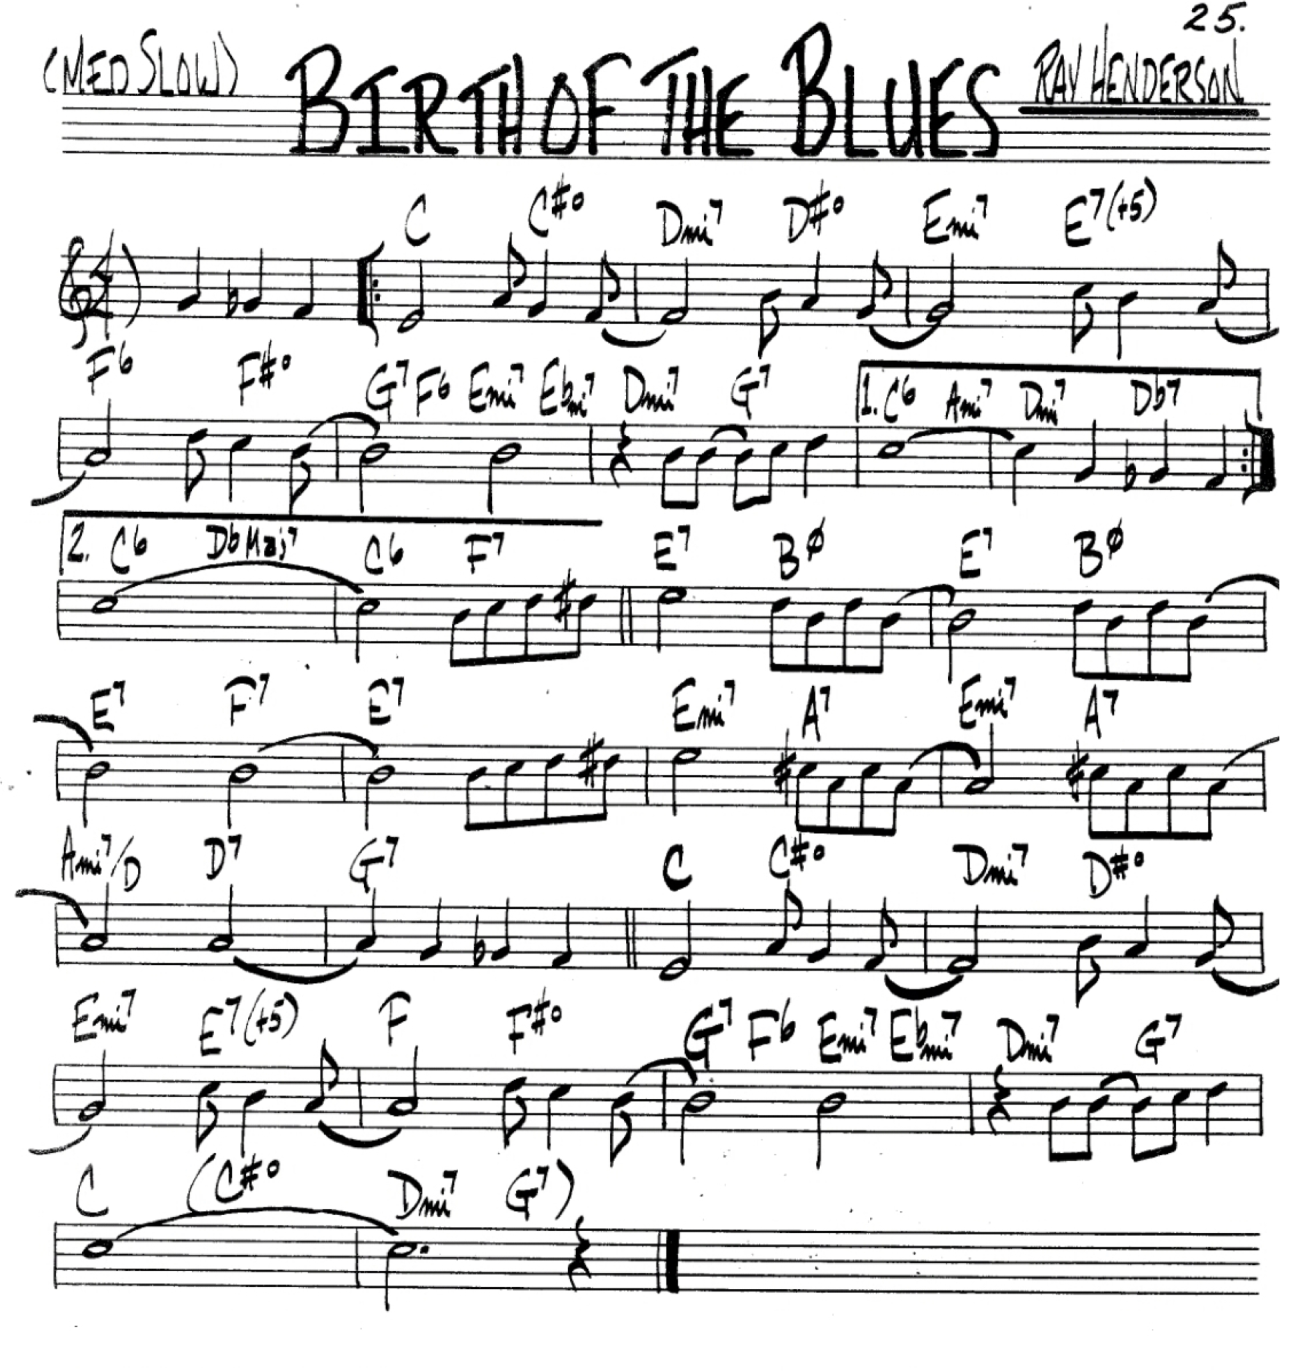 25.
(MED SLOW) BIRTH OF THE BLUES RAY HENDERSON
C C#o Dmi7 D#o Emi7 E7(+5)
4
F6 F#o G7 F6 Emi7 Ebmi7 Dmi7 G7 1. C6 Ami7 Dmi7 Db7
2. C6 DbMaj7 C6 F7 E7 Bø E7 Bø
E7 F7 E7 Emi7 A7 Emi7 A7
Ami7/D D7 G7 C C#o Dmi7 D#o
Emi7 E7(+5) F F#o G7 F6 Emi7 Ebmi7 Dmi7 G7
C (C#o Dmi7 G7)